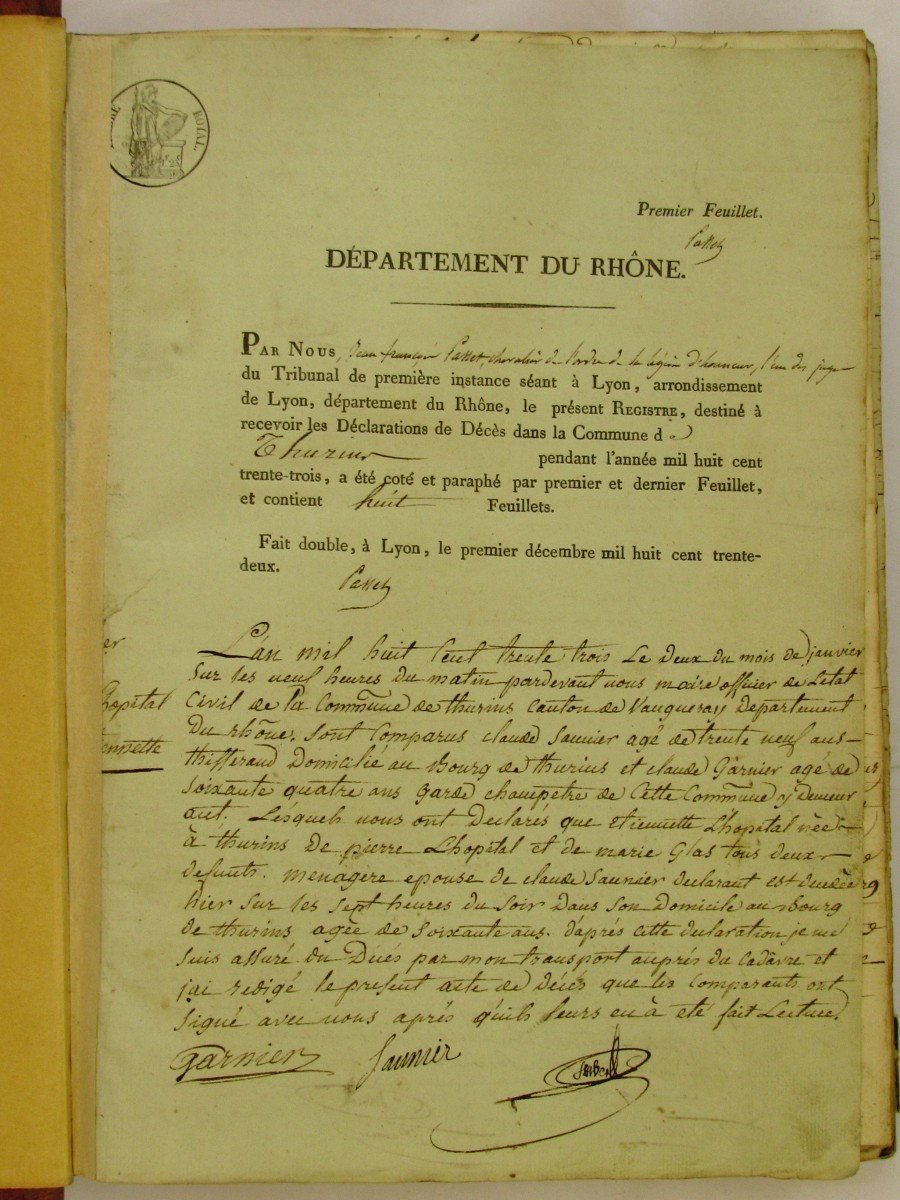 ROYAL.
Premier Feuillet.
Passet
DÉPARTEMENT DU RHÔNE.
PAR NOUS, Jean françois Passet, chevalier de l'ordre de la légion d'honneur, l'un des juges
du Tribunal de première instance séant à Lyon, arrondissement
de Lyon, département du Rhône, le présent REGISTRE, destiné à
recevoir les Déclarations de Décès dans la Commune de
Thurins pendant l'année mil huit cent
trente-trois, a été coté et paraphé par premier et dernier Feuillet,
et contient huit Feuillets.
Fait double, à Lyon, le premier décembre mil huit cent trente-
deux.
Passet
er
hopital
ennette
L'an mil huit Cent trente trois Le Deux du mois de janvier
Sur les neuf heures du matin pardevant nous maire officier de Letat
Civil de la Commune de thurins Canton de Vaugneray Departement
Du rhône, sont Comparus claude Saunier agé de trente neuf ans
thisserand Domicilié au Bourg de thurins et claude Garnier agé de
Soixante quatre ans garde champetre de Cette Commune y Demeur
ant. Lesquels nous ont Declarés que etiennette Lhopital née
à thurins De pierre Lhopital et de marie Glas tous deux
defunts. menagere epouse de claude Saunier declarant est decedée
hier sur les sept heures du soir Dans son Domicile au Bourg
de thurins agée de soixante ans. d'aprés cette declaration je me
suis assuré du Décés par mon transport auprés du Cadâvre et
j'ai redigé le present acte de décés que les Comparants ont
signé avec nous aprés qu'ils leurs en à eté fait Lecture.
garnier Saunier